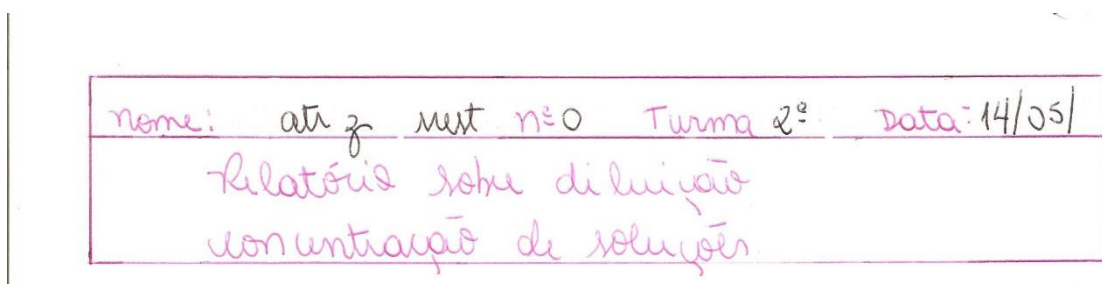 Nome: nº 0 Turma 2ª Data: 14/05/
Relatório sobre diluição
concentração de soluções.